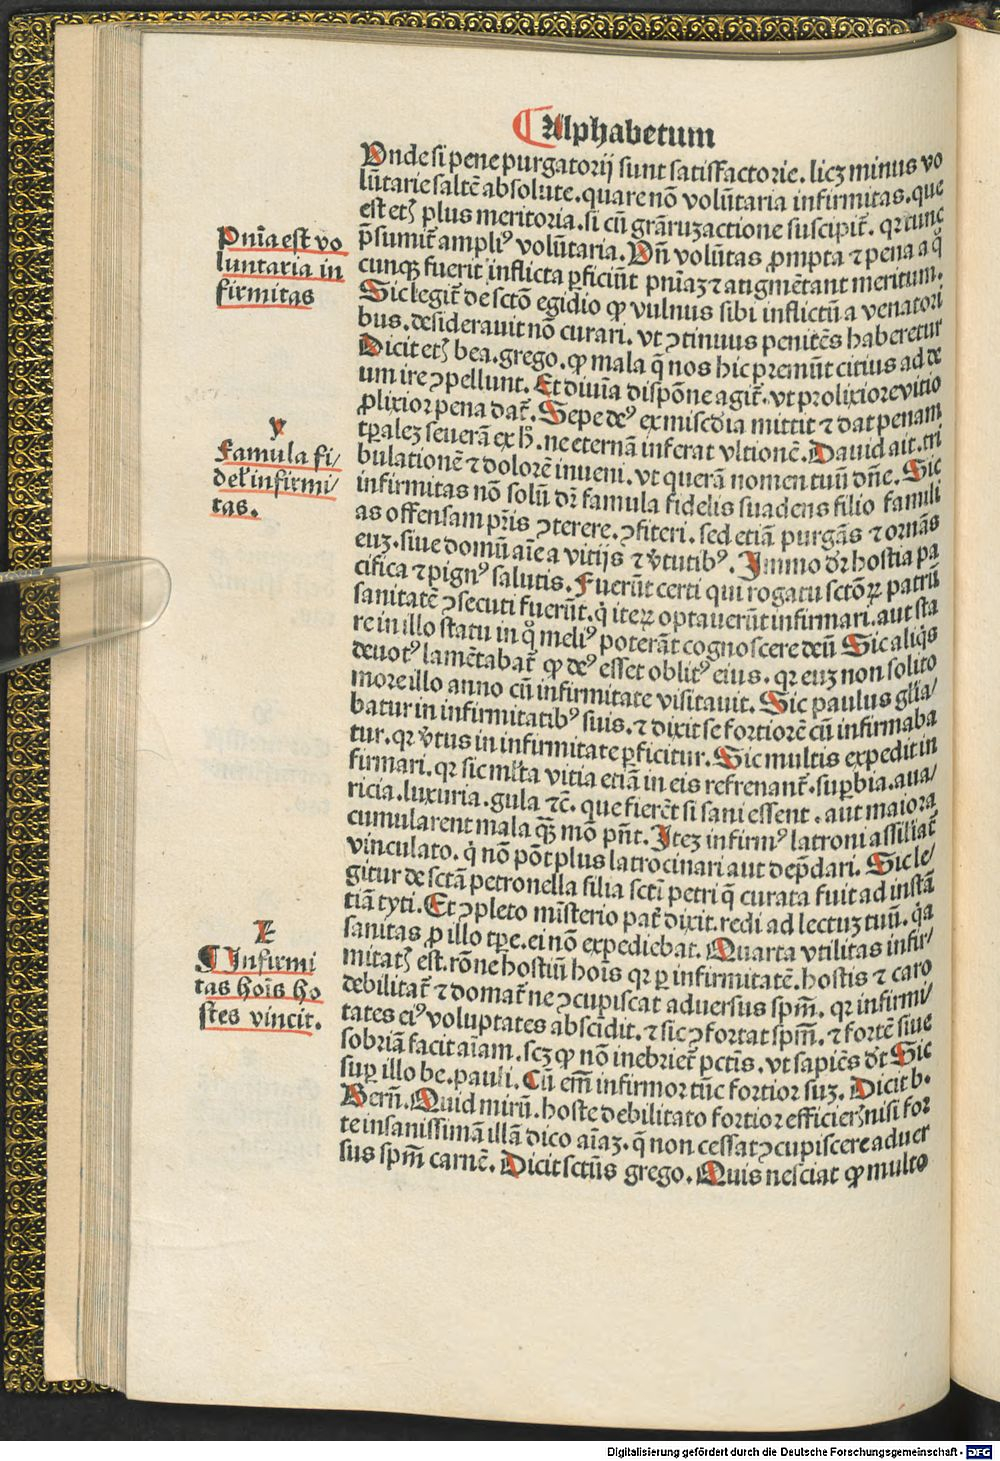 Alphabetum
Unde si pene purgatorij sunt satisfactorie. licꝫ minus vo
lũtarie saltẽ absolute. quare nõ volũtaria infirmitas. que
est etꝫ plus meritoria. si cũ grãꝝ actione suscipit̃. qꝛ tunc
p̃sumit̃ ampliꝰ volũtaria. Uñ volũtas ꝓmpta ⁊ pena a q̊
cunqꝫ fuerit inflicta ꝑficiũt pñiaꝫ ⁊ augmẽtant meritum.
Sic legit̃ de sctõ egidio ꝙ vulnus sibi inflictũ a venatori
bus. desiderauit nõ curari. vt ꝯtinuus penitẽs haberetur
Dicit etꝫ bea. grego. ꝙ mala q̃ nos hic premũt citius ad de
um ire ꝯpellunt. Et diuĩa dispõne agit̃. vt prolixiore vitio
ꝓlixior pena dat̃. Sepe deꝰ ex miscd̃ia mittit ⁊ dat penam
tꝑaleꝫ seuerã ex h̃. ne eternã inferat vltionẽ. Dauid ait. tri
bulationẽ ⁊ dolorẽ inueni. vt querã nomen tuũ dñe. Sic
infirmitas nõ solũ dr̃ famula fidelis suadens filio famili
as offensam pr̃is ꝯterere. ꝯfiteri. sed etiã purgãs ⁊ ornãs
euꝫ. siue domũ aĩe a vitijs ⁊ v̓tutibꝰ. Immo dr̃ hostia pa
cifica ⁊ pignꝰ salutis. Fuerũt certi qui rogatu sctõꝝ patrũ
sanitatẽ ꝯsecuti fuerũt. q̇ iteꝝ optauerũt infirmari. aut sta
re in illo statu in q̊ meliꝰ poterãt cognoscere deũ Sic aliq̇s
deuotꝰ lamẽtabat̃ ꝙ deꝰ esset oblitꝰ eius. qꝛ euꝫ non solito
more illo anno cũ infirmitate visitauit. Sic paulus gl̃ia/
batur in infirmitatibꝰ suis. ⁊ dixit se fortiorẽ cũ infirmaba
tur. qꝛ v̓tus in infirmitate ꝑficitur. Sic multis expedit in
firmari. qꝛ sic ml̃ta vitia etiã in eis refrenant̃. suꝑbia. aua/
ricia. luxuria. gula ⁊c̃. que fierẽt si sani essent. aut maiora
cumularent mala qꝫ̃ mõ pñt. Iteꝫ infirmꝰ latroni assiliat̃
vinculato. q̇ nõ põt plus latrocinari aut dep̃dari. Sic le/
gitur de sctã petronella filia scti petri q̃ curata fuit ad instã
tiã tyti. Et ꝯpleto mĩsterio pat̃ dixit. redi ad lectuꝫ tuũ. q̇a
sanitas ꝓ illo tꝑe. ei nõ expediebat. Quarta vtilitas infir/
mitatꝫ est. rõne hostiũ hoĩs qꝛ ꝑ infirmitatẽ. hostis ⁊ caro
debilitat̃ ⁊ domat̃ ne ꝯcupiscat aduersus spm̃. qꝛ infirmi/
tates eiꝰ voluptates abscidit. ⁊ sic ꝯfortat spm̃. ⁊ fortẽ siue
sobriã facit aĩam. scꝫ ꝙ nõ inebriet̃ pctĩs. vt sapiẽs dr̃t Sic
suꝑ illo be. pauli. Cũ em̃ infirmor tũc fortior suꝫ. Dicit b.
Berñ. Quid mirũ. hoste debilitato fortior efficierꝫ nisi for
te insanissimã illã dico aĩaꝫ. q̃ non cessat ꝯcupiscere aduer
sus spm̃ carnẽ. Dicit sctũs grego. Quis nesciat ꝙ multo
Pñia est vo
luntaria in
firmitas
y
Famula fi/
del̃ infirmi/
tas.
z
Infirmi
tas hoĩs ho
stes vincit.
Digitalisierung gefördert durch die Deutsche Forschungsgemeinschaft - DFG